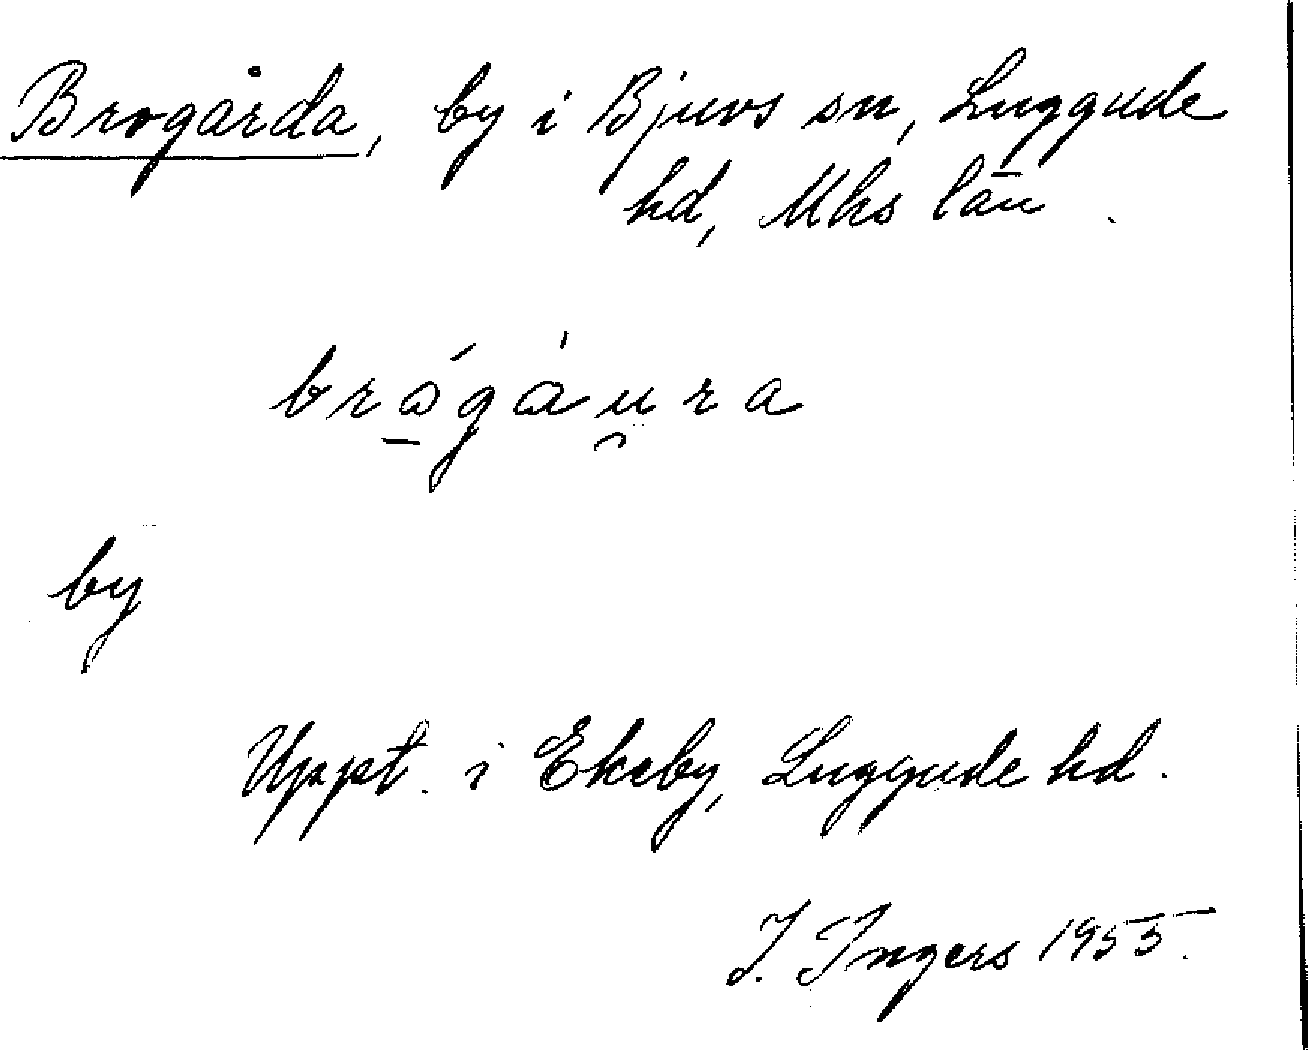 Brogårda, by i Bjuvs sn, Luggude
hd, Mhs län
brǫ́gáu̯ra
by
Uppt. i Ekeby, Luggude hd.
I. Ingers 1955.